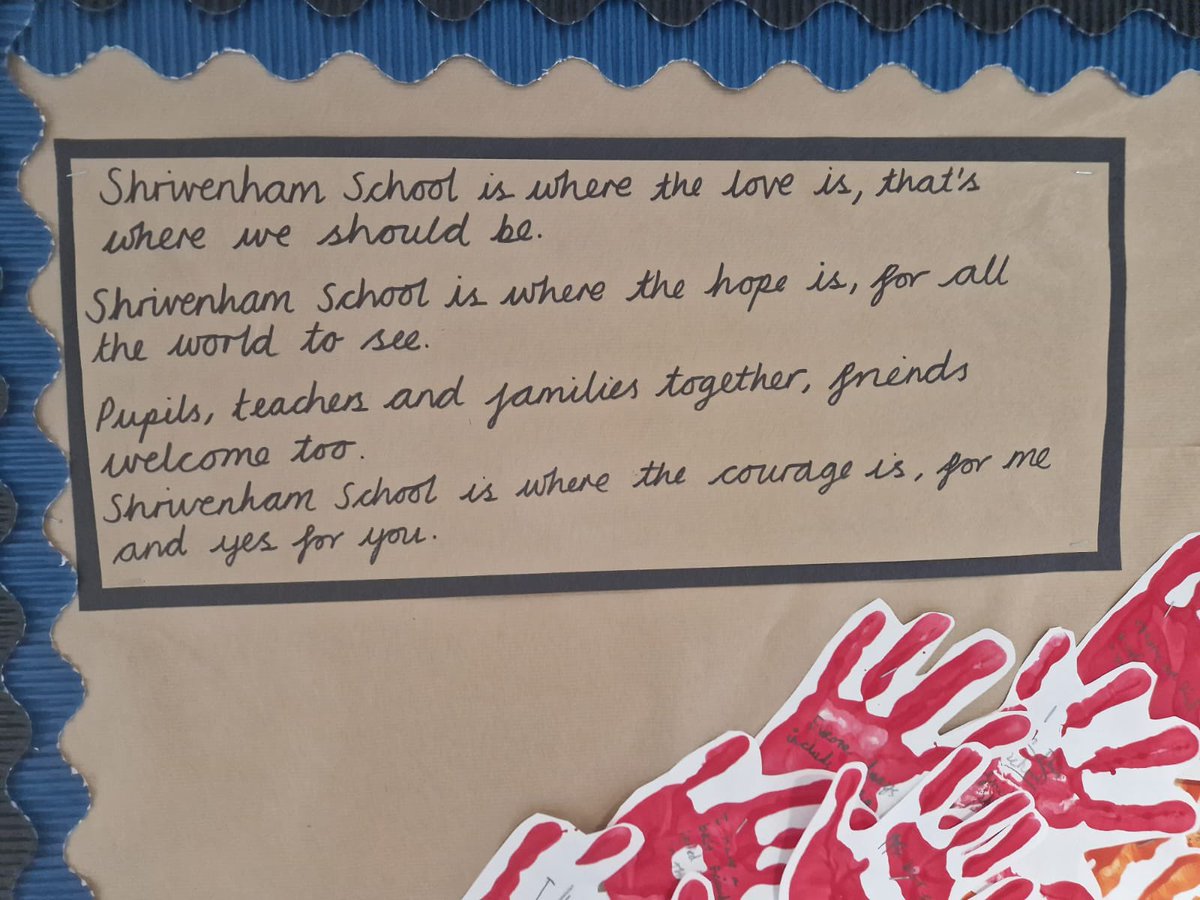 Shrivenham School is where the love is, that's
where we should be.
Shrivenham School is where the hope is, for all
the world to see.
Pupils, teachers and families together, friends
welcome too.
Shrivenham School is where the courage is, for me
and yes for you.